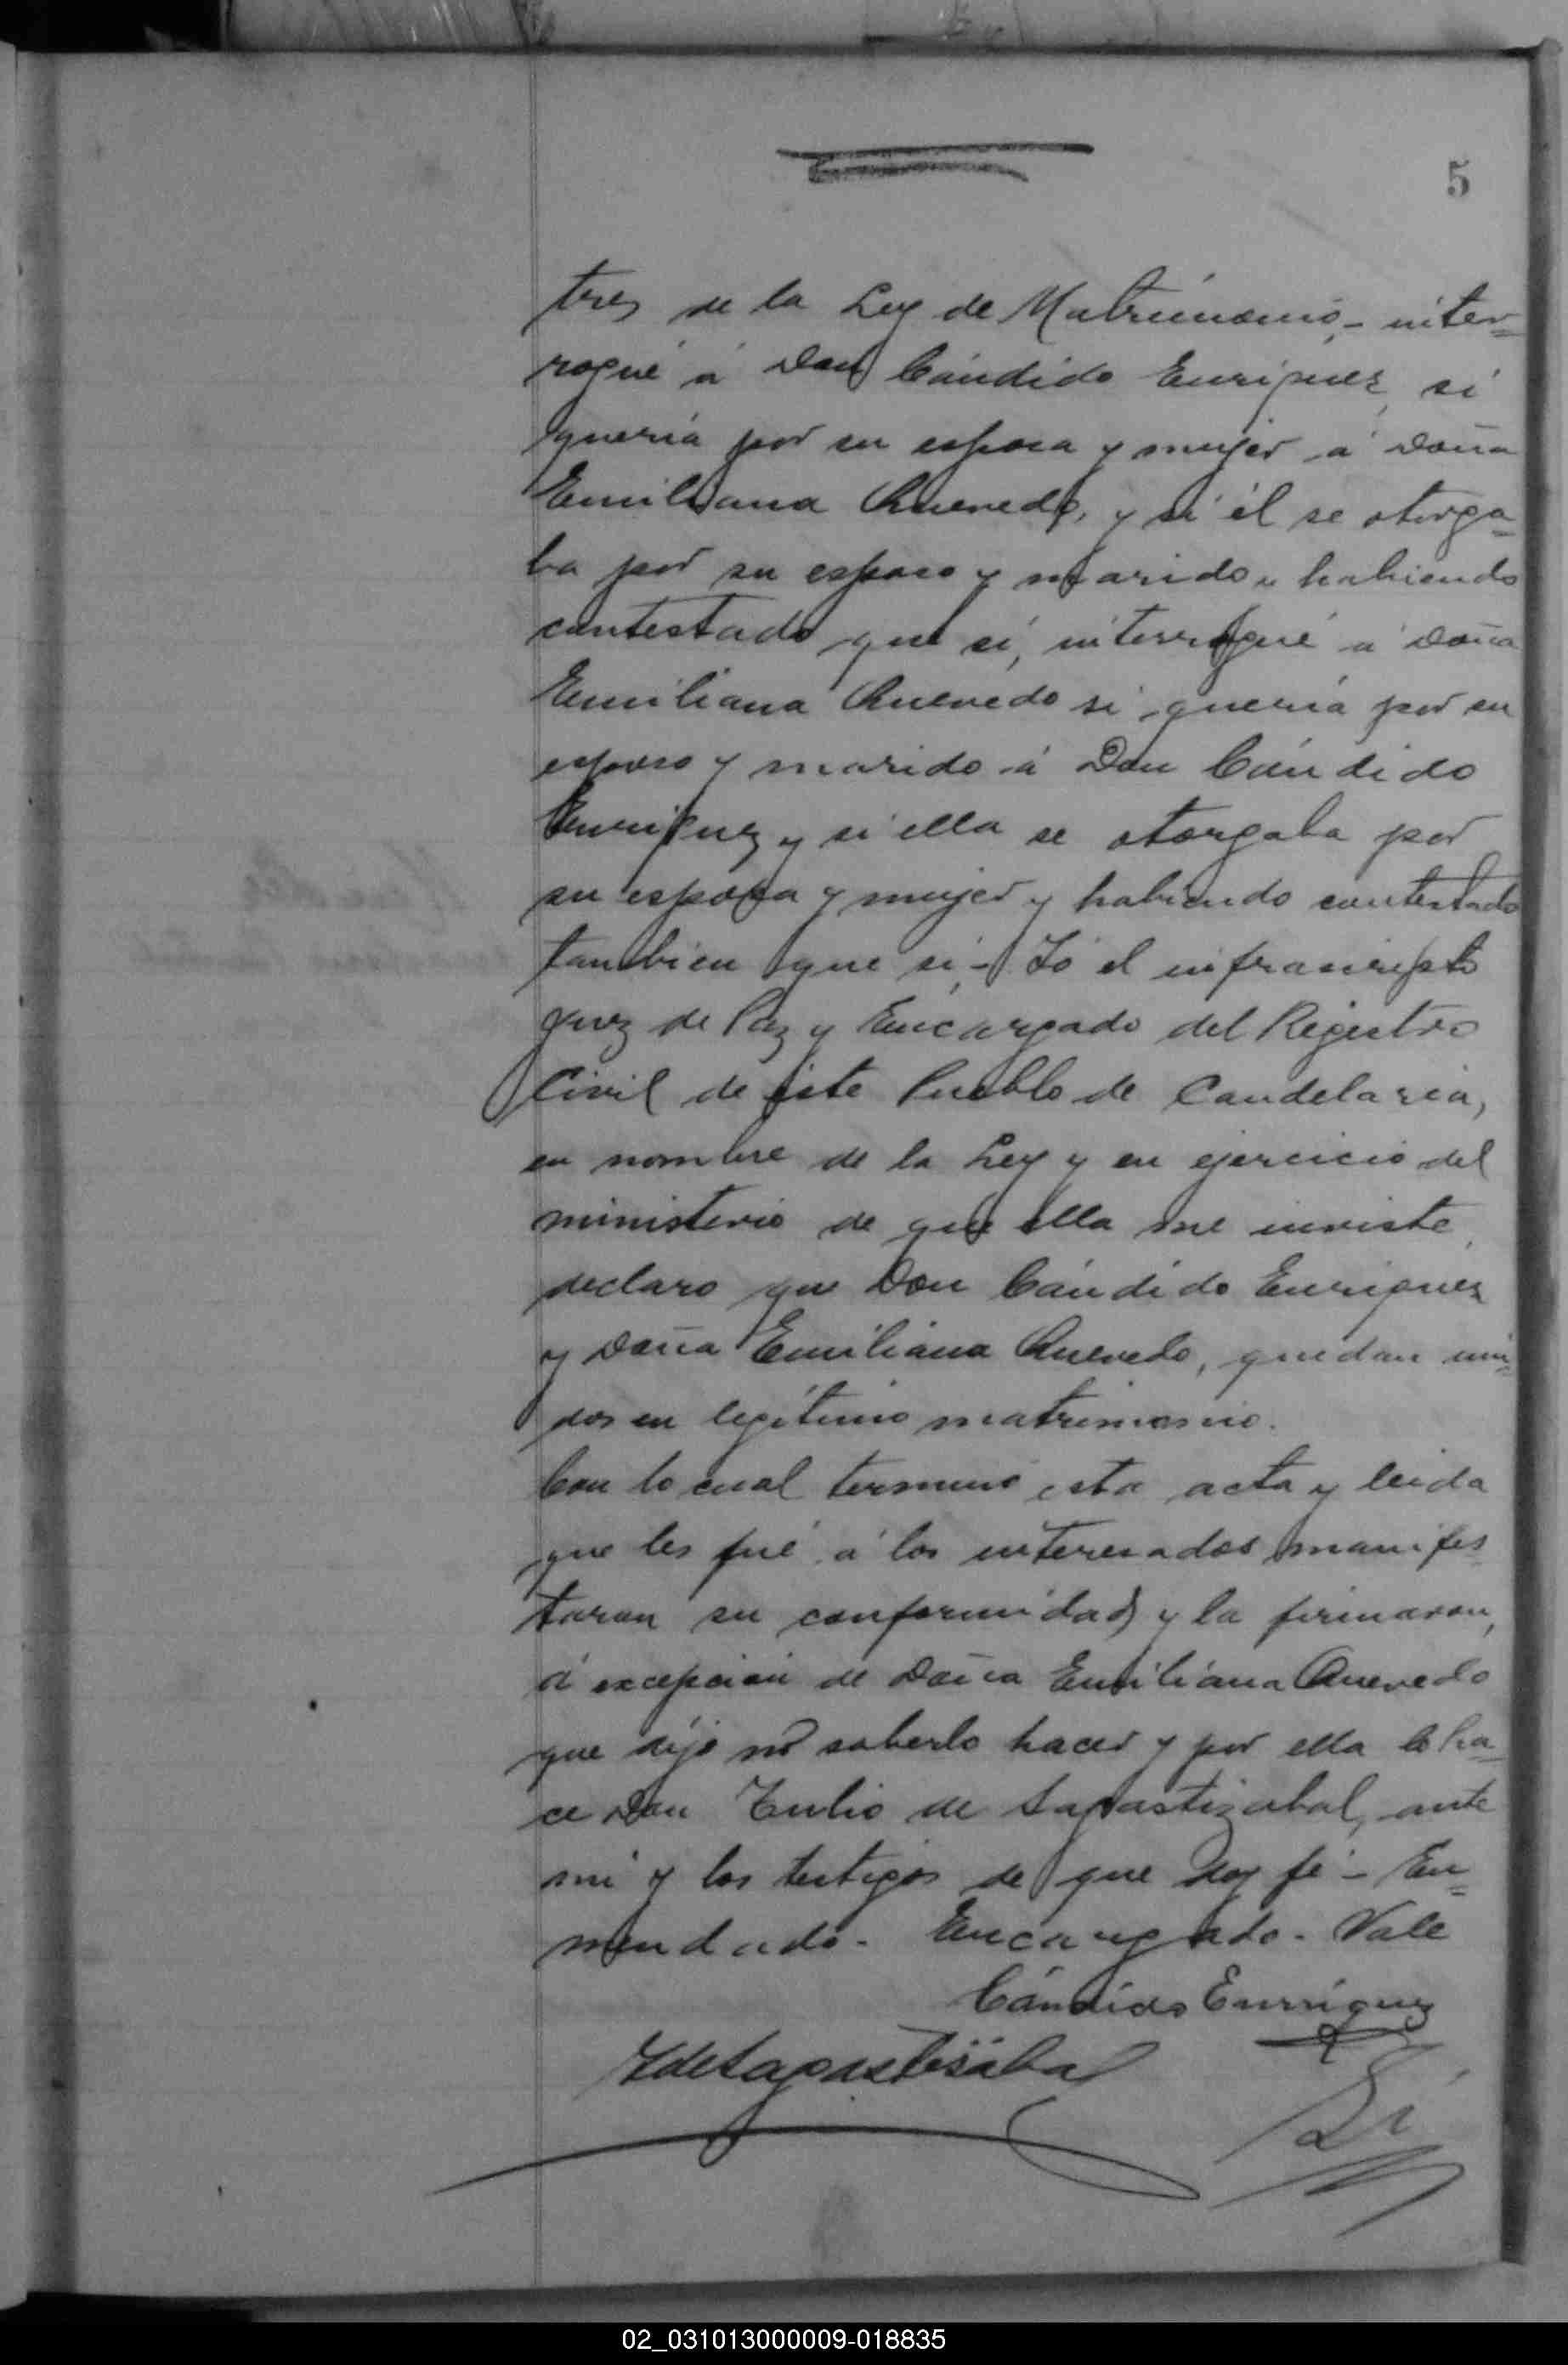 5
tres de la Ley de Matrimonio,- inter=
rogué á Don Cándido Enriquez, si
queria por su esposa y mujer á Doña
Emiliana Quevedo, y si él se otorga=
ba por su esposo y marido y habiendo
contestado que si, interrogué á Doña
Emiliana Quevedo si queria por su
esposo y marido á Don Cándido
Enriquez y si ella se otorgaba por
su esposa y mujer y habiendo contestado
tambien que si,- Yo el infrascripto
Juez de Paz y Encargado del Registro
Civil de este Pueblo de Candelaria,
en nombre de la Ley y en ejercicio del
ministerio de que ella me inviste,
declaro que Don Cándido Enriquez
y Doña Emiliana Quevedo, quedan uni=
dos en legítimo matrimonio.
Con lo cual terminó esta acta y leida
que les fué á los interesados manifes=
taron su conformidad y la firmaron,
á excepción de Doña Emiliana Quevedo
que dijo nó saberlo hacer y por ella lo ha=
ce Don Tulio de Lapastizabal, ante
mi y los testigos de que doy fé - En=
mendado - Encargado - Vale
Cándido Enrriquez
02_031013000009-018835